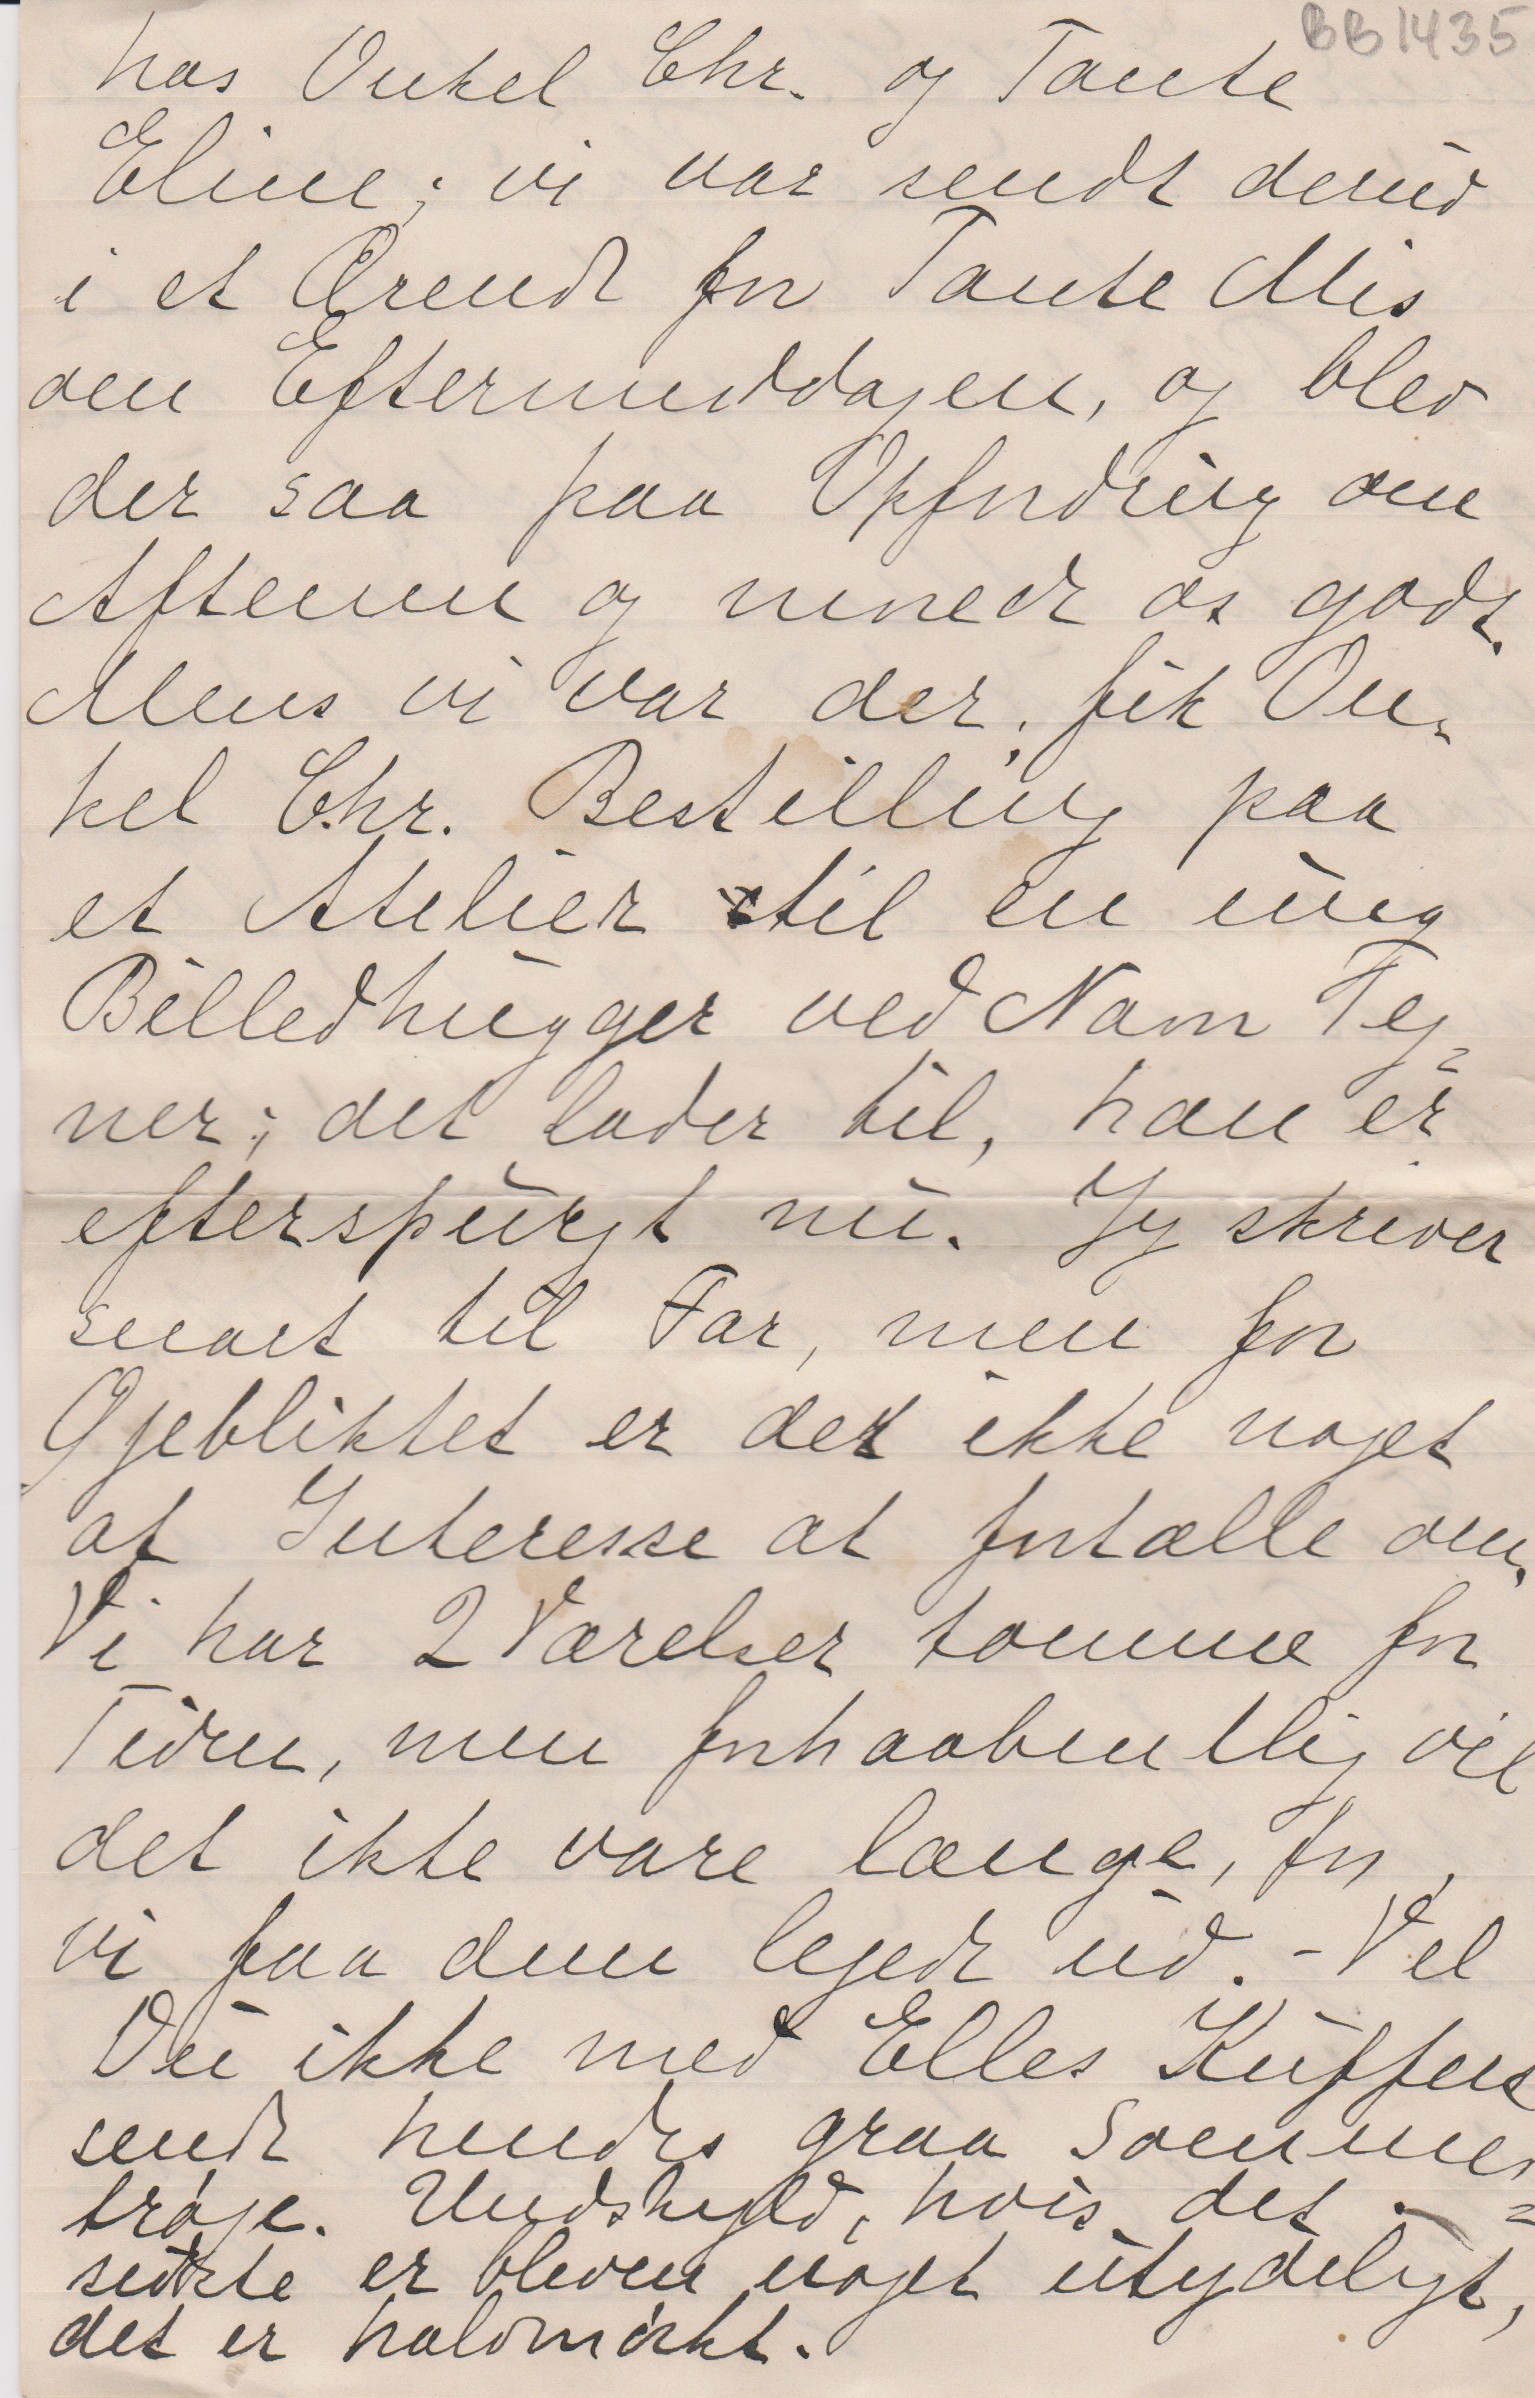 BB1435
hos Onkel Chr. og Tante
Eline; vi var sendt derud
i et Ærend for Tante Mis
om Eftermiddagen, og blev
der saa paa Opfordring om
Aftenen og morede os godt.
Mens vi var der, fik On-
kel Chr. Bestilling paa
et Atelier til en ung
Billedhugger ved Navn Teg=
ner; det lader til, han er
efterspurgt nu. Jeg skriver
snart til Far, men for
Øjeblikket er der ikke noget
af Interesse at fortælle om.
Vi har 2 Værelser tomme for
Tiden, men forhaabentlig vil
det ikke vare længe, før
vi faa dem lejede ud. - Vil
Du ikke med Elles Kuffert
sende hendes graa Sommer
trøje. Undskyld, hvis det =
sidste er bleven noget utydeligt,
det er halvmørkt.